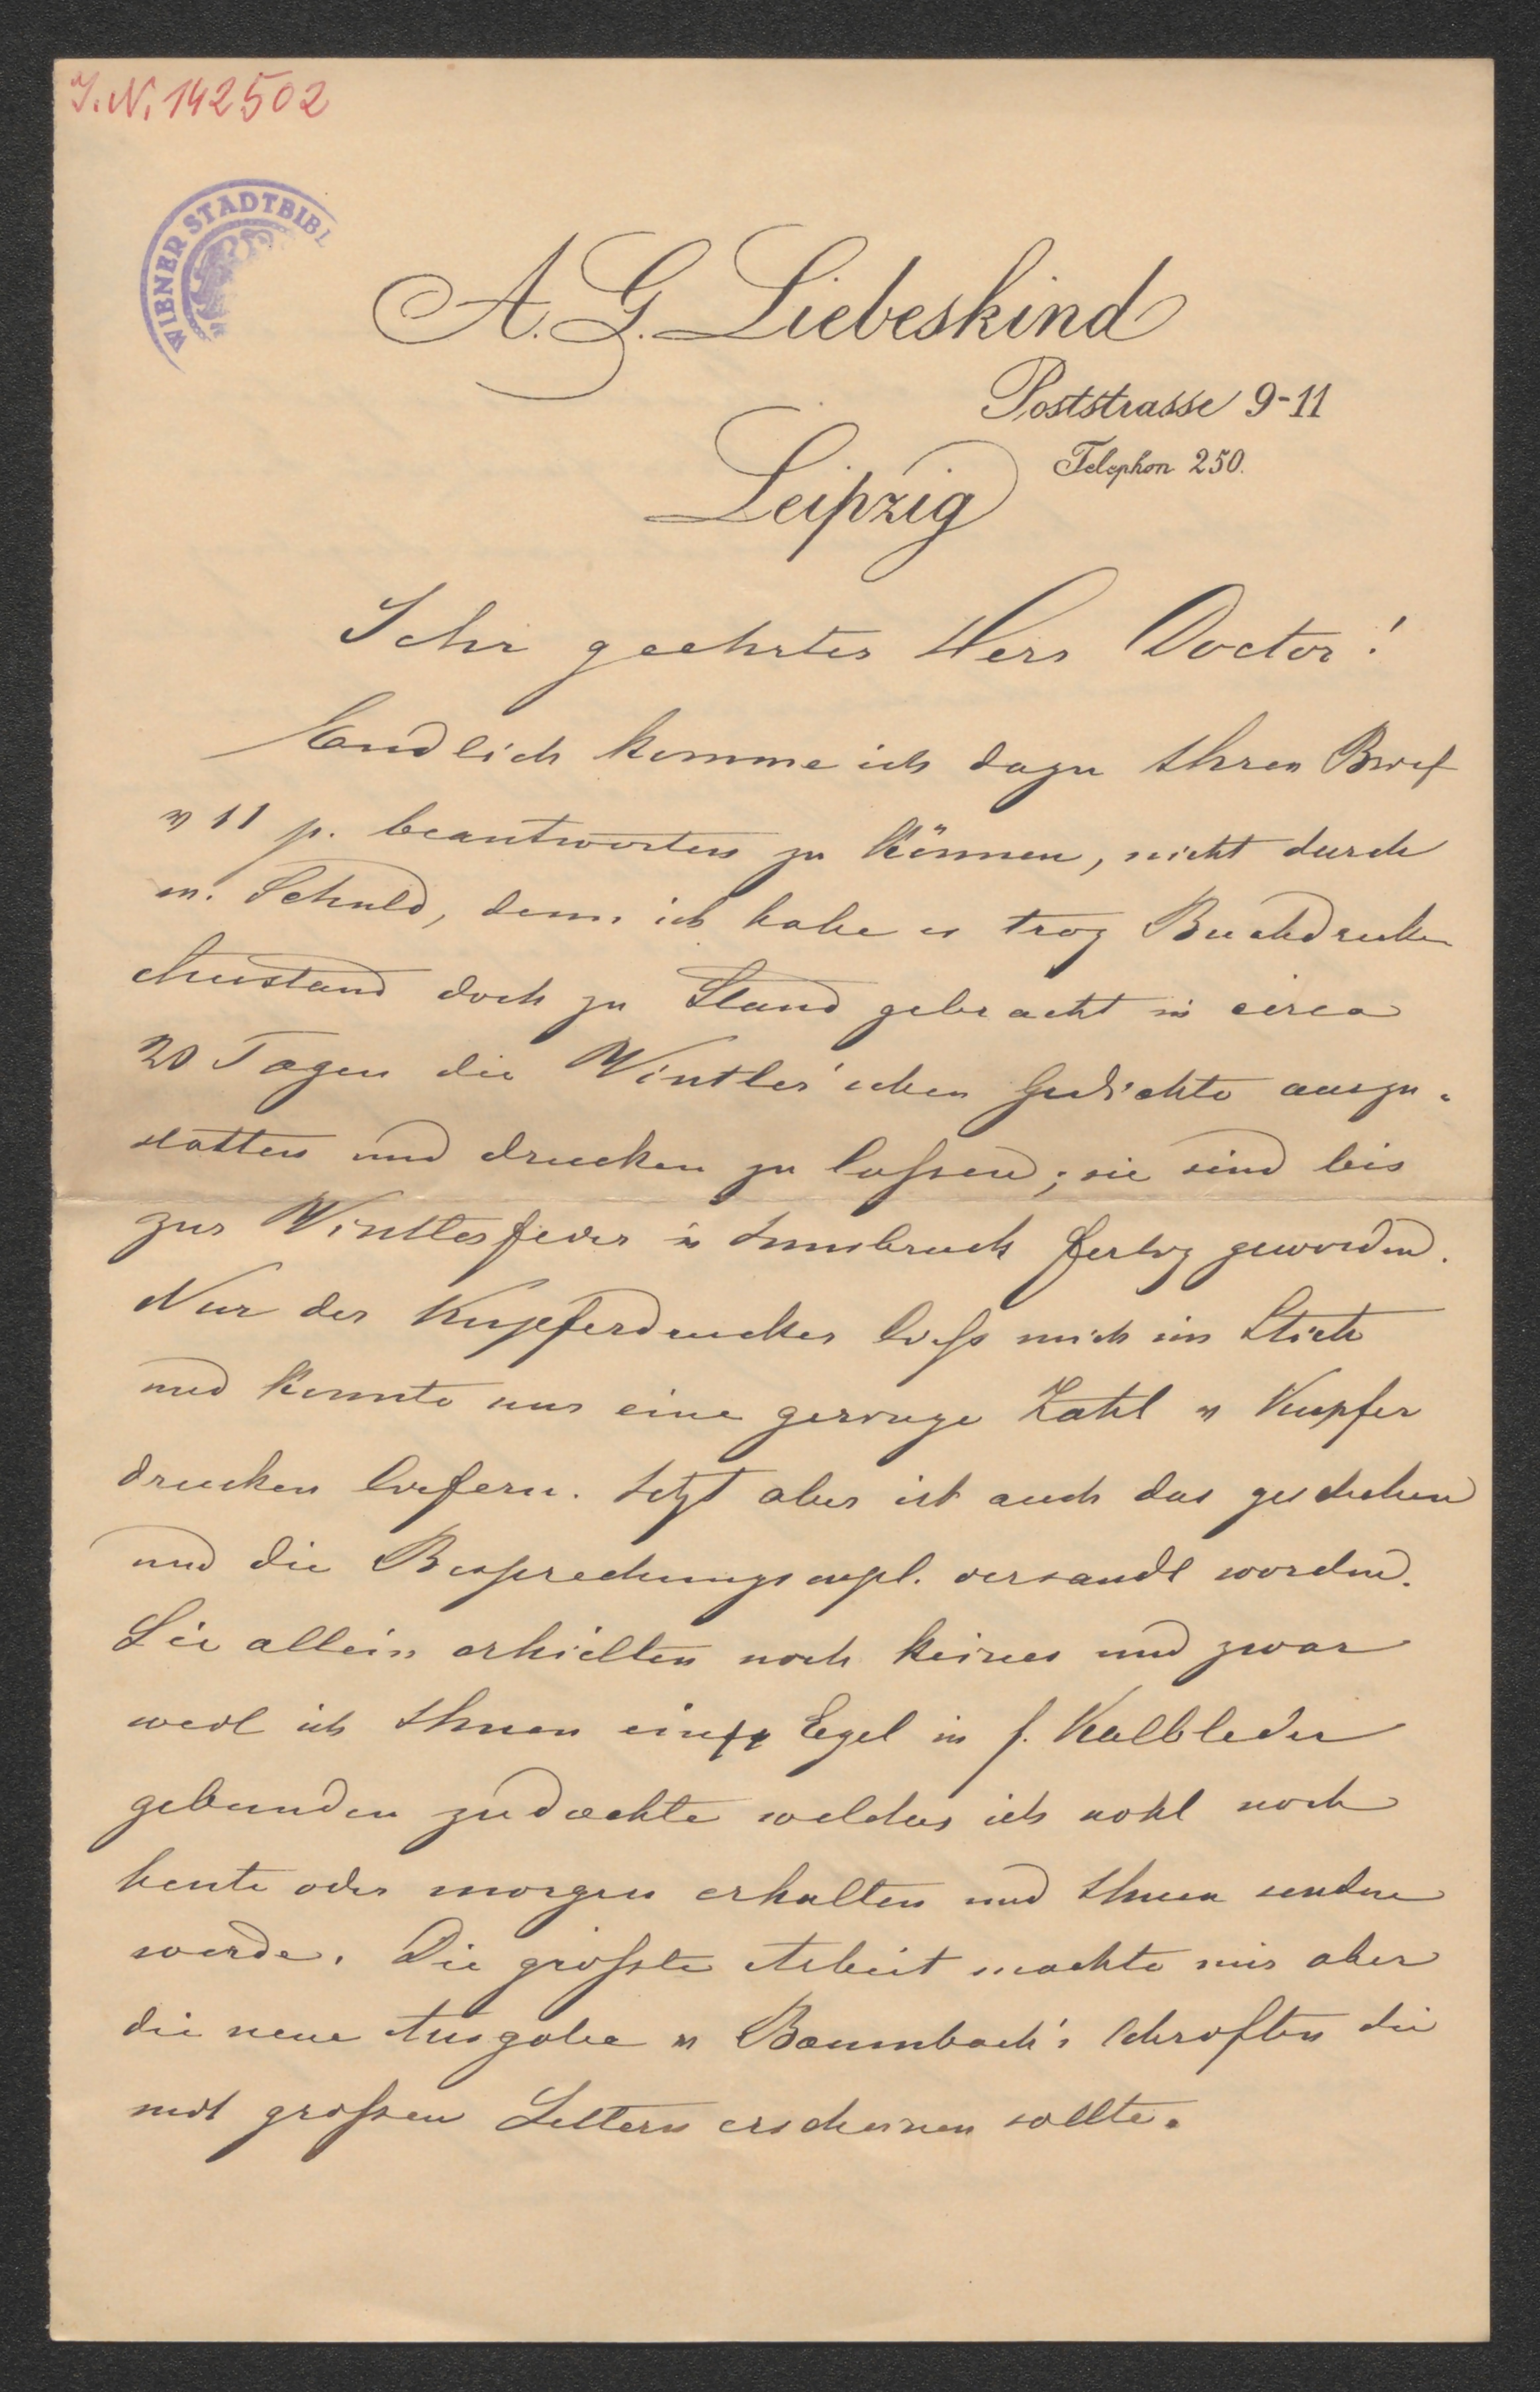 J. N. 142502
WIENER STADTBIBL
A. G. Liebeskind
Poststrasse 9-11
Telephon 250.
Leipzig
Sehr geehrter Herr Doctor!
Endlich komme ich dazu Ihren Brief
v 11 p. beantworten zu können, nicht durch
m. Schuld, denn ich habe es troz Buchdrucker
Ausstand doch zu Stand gebracht in circa
20 Tagen die Vintler'schen Gedichte auszu-
statten und drucken zu lassen; sie sind bis
zur Vintlerfeier in Innsbruck fertig geworden.
Nur der Kupferdrucker liess mich im Stich
und konnte nur eine geringe Zahl v Kupfer
drucken liefern. Jetzt aber ist auch das geschehen
und die Besprechungsexpl. versandt worden.
Sie allein erhielten noch keines und zwar
weil ich Ihnen ein Expl in f. Kalbleder
gebunden zudachte welches ich wohl noch
heute oder morgen erhalten und Ihnen senden
werde. Die grösste Arbeit machte mir aber
die neue Ausgabe v Baumbach's Schriften die
mit grossen Lettern erscheinen sollte.